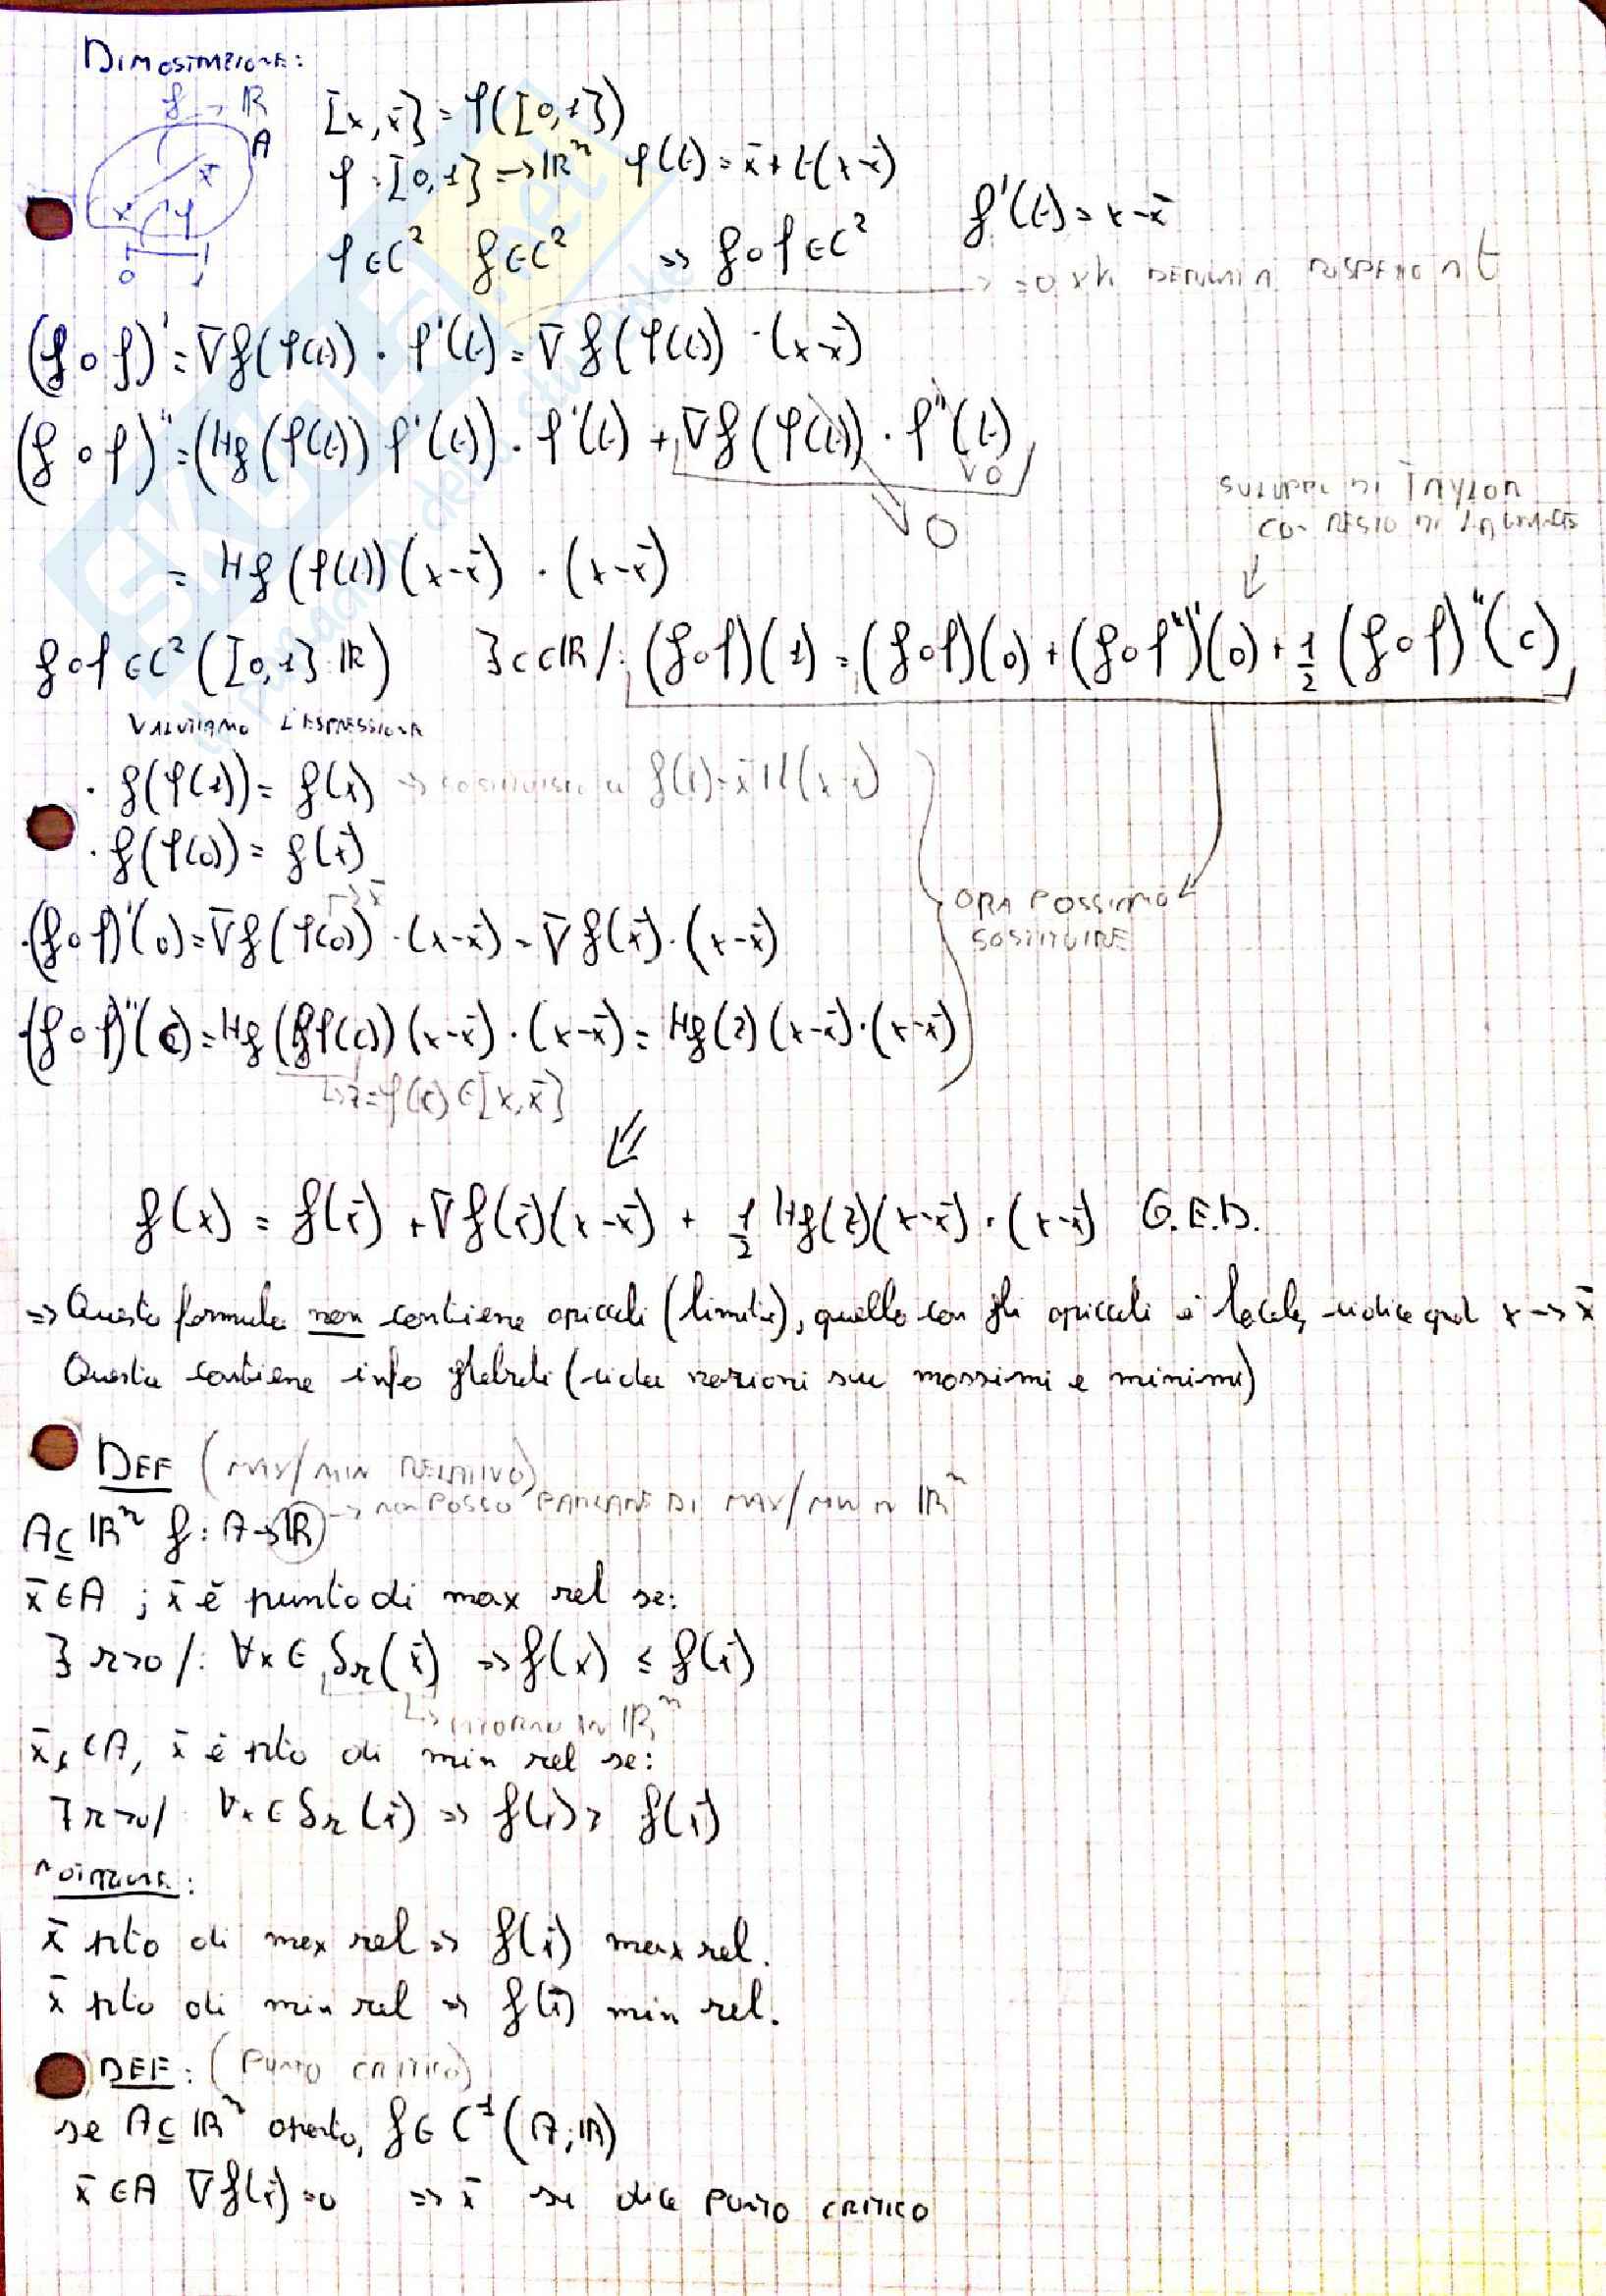 DIMOSTRAZIONE:
f → ℝ
A
[x, x̄] = φ([0,1])
φ: [0,1] → ℝⁿ φ(t) = x̄ + t(x-x̄)
φ'(t) = x-x̄
φ ∈ C² f ∈ C² ⇒ f∘φ ∈ C²
→ =0 xk DERIVATA RISPETTO A t
x x̄ φ
0 1
(f∘φ)' = ∇f(φ(t)) · φ'(t) = ∇f(φ(t)) · (x-x̄)
(f∘φ)'' = (Hf(φ(t)) φ'(t)) · φ'(t) + ∇f(φ(t)) · φ''(t)
0
SVILUPPI DI TAYLOR
CON RESTO DI LAGRANGE
= Hf(φ(t))(x-x̄) · (x-x̄)
f∘φ ∈ C²([0,1] ℝ) ∃ c ∈ ℝ /: (f∘φ)(1) = (f∘φ)(0) + (f∘φ'')(0) + 1/2 (f∘φ)''(c)
VALUTIAMO L'ESPRESSIONE
· f(φ(1)) = f(x)
· f(φ(0)) = f(x̄)
→ x̄
· (f∘φ)'(0) = ∇f(φ(0)) · (x-x̄) = ∇f(x̄) · (x-x̄)
ORA POSSIAMO
SOSTITUIRE
· (f∘φ)''(c) = Hf(φ(c))(x-x̄) · (x-x̄) = Hf(z)(x-x̄) · (x-x̄)
↳ z = φ(c) ∈ [x, x̄]
f(x) = f(x̄) + ∇f(x̄)(x-x̄) + 1/2 Hf(z)(x-x̄) · (x-x̄) Q.E.D.
⇒ Questa formula non contiene opiccoli (limiti), quella con gli opiccoli è locale, ci dice qcs x → x̄
Questa contiene info globali (ci da nozioni su massimi e minimi)
DEF (MAX/MIN RELATIVO)
→ NON POSSO PARLARE DI MAX/MIN IN ℝⁿ
A ⊆ ℝⁿ f: A → ℝ
x̄ ∈ A ; x̄ è punto di max rel se:
∃ r>0 /: ∀x ∈ Sr(x̄) ⇒ f(x) ≤ f(x̄)
↳ INTORNO IN ℝⁿ
x̄ ∈ A, x̄ è pto di min rel se:
∃ r>0 / ∀x ∈ Sr(x̄) ⇒ f(x) ≥ f(x̄)
NOTAZIONE:
x̄ pto di max rel ⇒ f(x̄) max rel.
x̄ pto di min rel ⇒ f(x̄) min rel.
DEF: (PUNTO CRITICO)
se A ⊆ ℝⁿ aperto, f ∈ C¹(A; ℝ)
x̄ ∈ A ∇f(x̄) = 0 ⇒ x̄ si dice PUNTO CRITICO